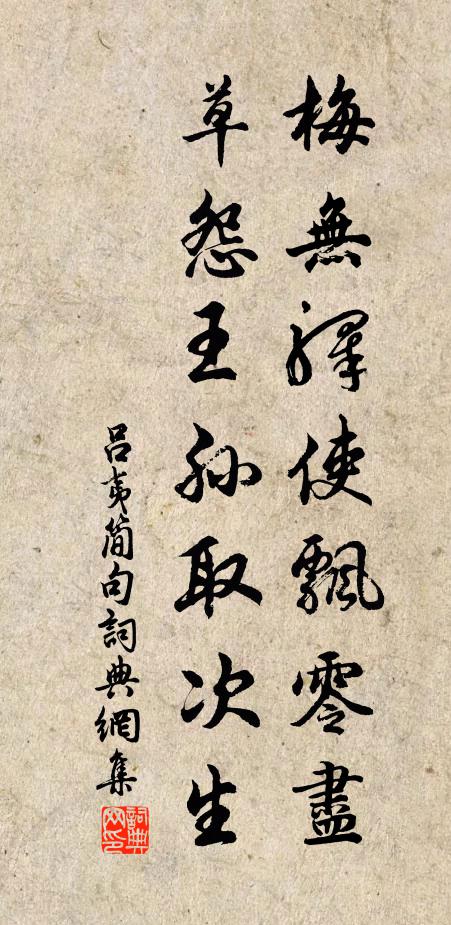 梅無驛使飄零盡
草怨王孫取次生
吕夷簡句詞典網集
詞典網印